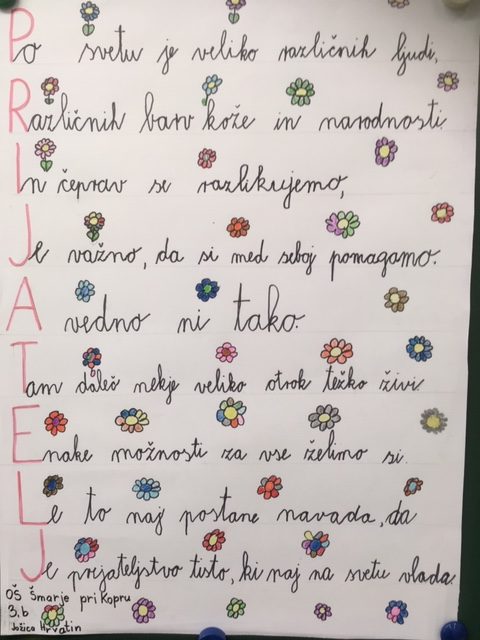 Po svetu je veliko različnih ljudi,
Različnih barv kože in narodnosti.
In čeprav se razlikujemo,
Je važno, da si med seboj pomagamo.
A vedno ni tako.
Tam daleč nekje veliko otrok težko živi
Enake možnosti za vse želimo si.
Le to naj postane navada, da
Je prijateljstvo tisto, ki naj na svetu vlada.
OŠ Šmarje pri Kopru
3. b
Jožica Hrvatin